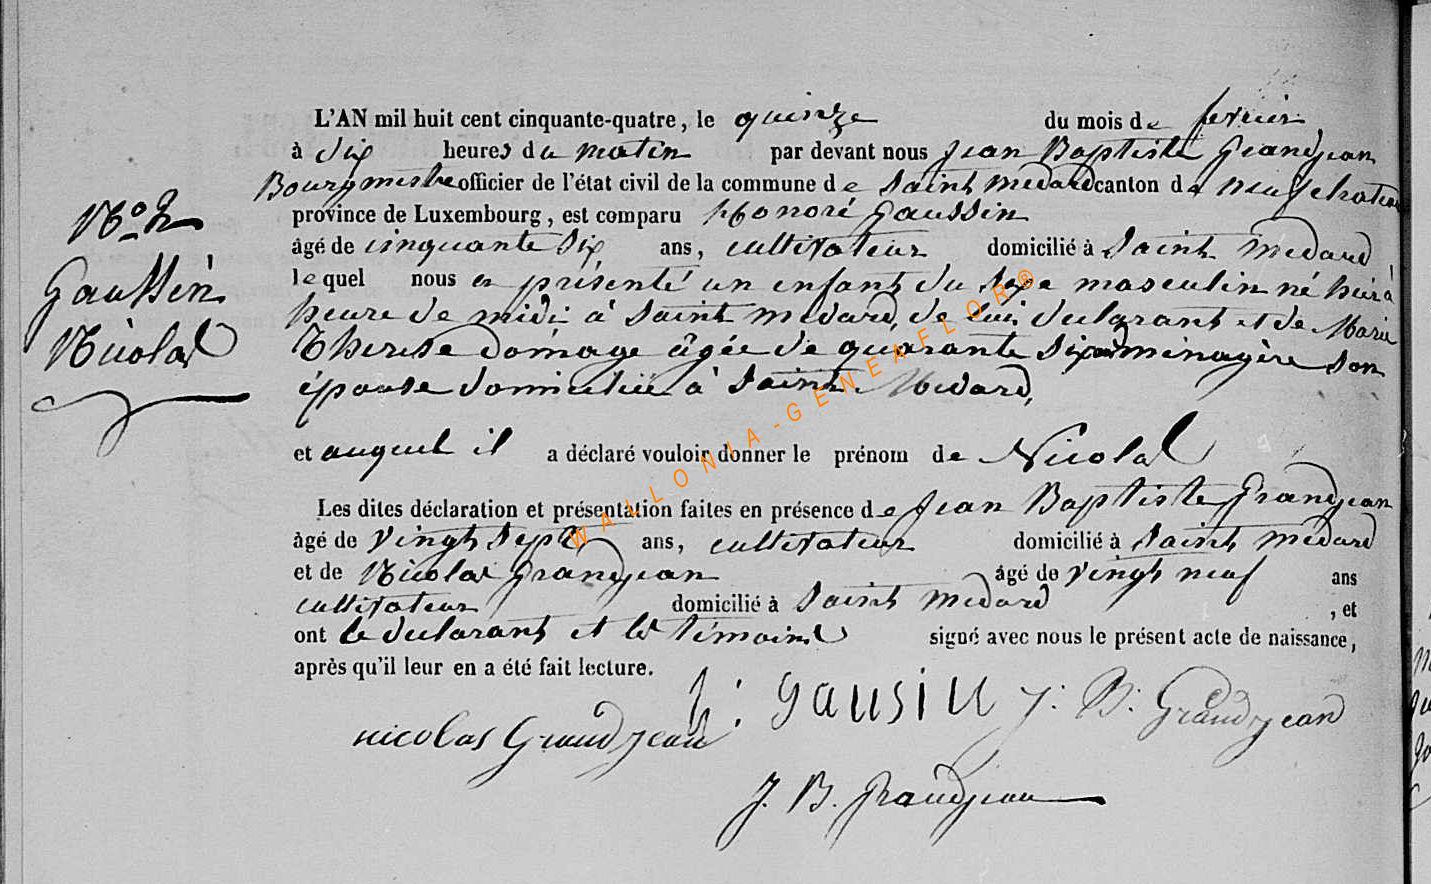 L'AN mil huit cent cinquante-quatre, le quinze du mois de fevrier
à dix heures du matin par devant nous Jean Baptiste Grandjean
Bourgmestre officier de l'état civil de la commune de Saint Medard canton de neufchateau
province de Luxembourg, est comparu Honoré Gaussin
âgé de cinquante six ans, cultivateur domicilié à Saint Medard
lequel nous a présenté un enfant du sexe masculin né hier à
heure de midi à Saint medard, de lui declarant et de Marie
Therese Domage âgée de quarante six ans ménagère son
épouse domiciliée à Saint Medard,
N° 2
Gaussin
Nicolas
et auquel il a déclaré vouloir donner le prénom de Nicolas
Les dites déclaration et présentation faites en présence de Jean Baptiste Grandjean
âgé de vingt sept ans, cultivateur domicilié à Saint medard
et de Nicolas Grandjean âgé de vingt neuf ans
cultivateur domicilié à Saint medard, et
ont le declarant et les témoins signé avec nous le présent acte de naissance,
après qu'il leur en a été fait lecture.
h: gausin J: B: Grandjean
nicolas Grandjean
J. B. Grandjean
WALLONIA-GENEAFLOR®